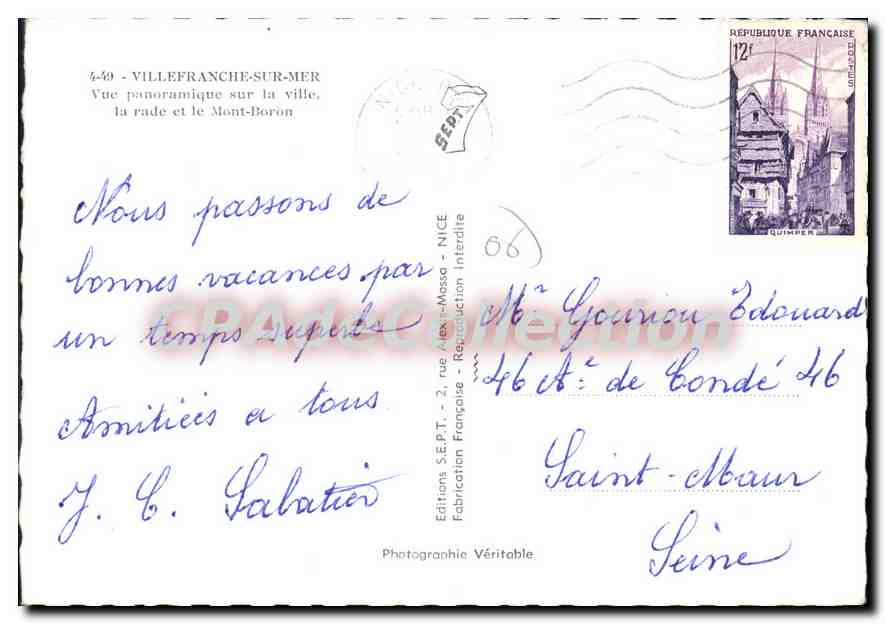 4-49 - VILLEFRANCHE-SUR-MER
Vue panoramique sur la ville,
la rade et le Mont-Boron
NICE
7
SEPT.
RÉPUBLIQUE FRANÇAISE
12f
POSTES
QUIMPER
Nous passons de
bonnes vacances par
un temps superbe
Amitiées a tous
J. C. Sabatier
Editions S.E.P.T. - 2, rue Alexis-Mossa - NICE
Fabrication Française - Reproduction Interdite
06
Mr Gouriou Edouard
46 Ae de Condé 46
Saint-Maur
Seine
Photographie Véritable
CPAdeCollection